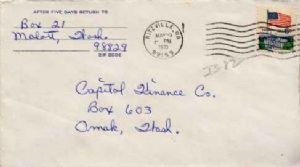 AFTER FIVE DAYS RETURN TO
Box 21
Malott, Wash.
98829
ZIP CODE
WA
PM
99159
2382
Capitol Finance Co.
Box 603
Omak, Wash.